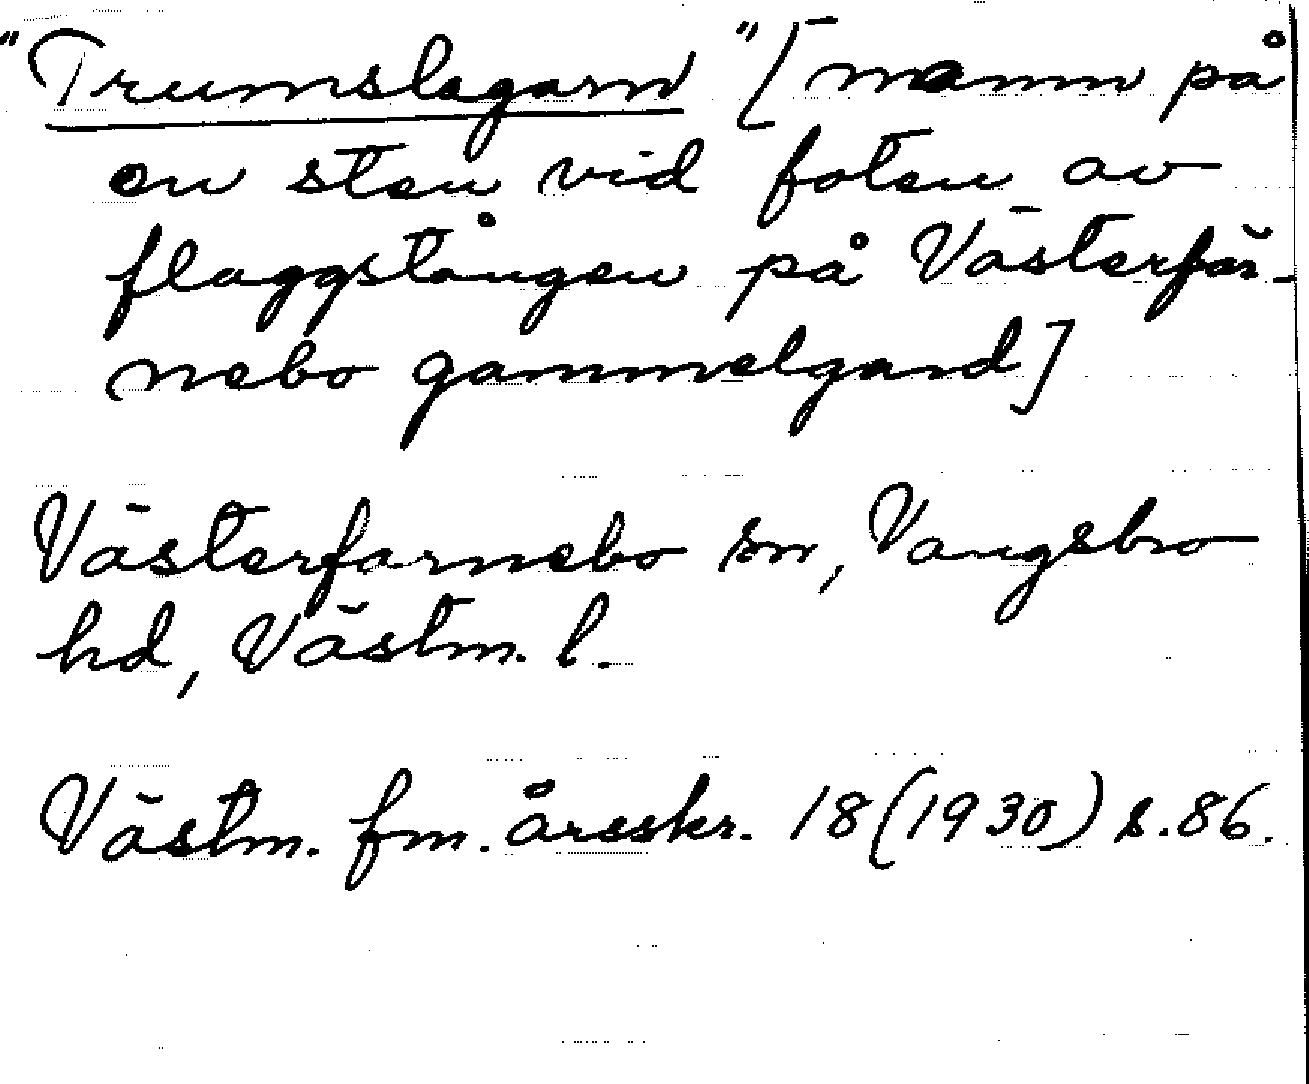 "Trumslagarn" [namn på
en sten vid foten av
flaggstången på Västerfär-
nebo gammelgard]
Västerfarnebo sn, Vangsbro
hd, Västm. l.
Västm. fm. årsskr. 18(1930) s. 86.